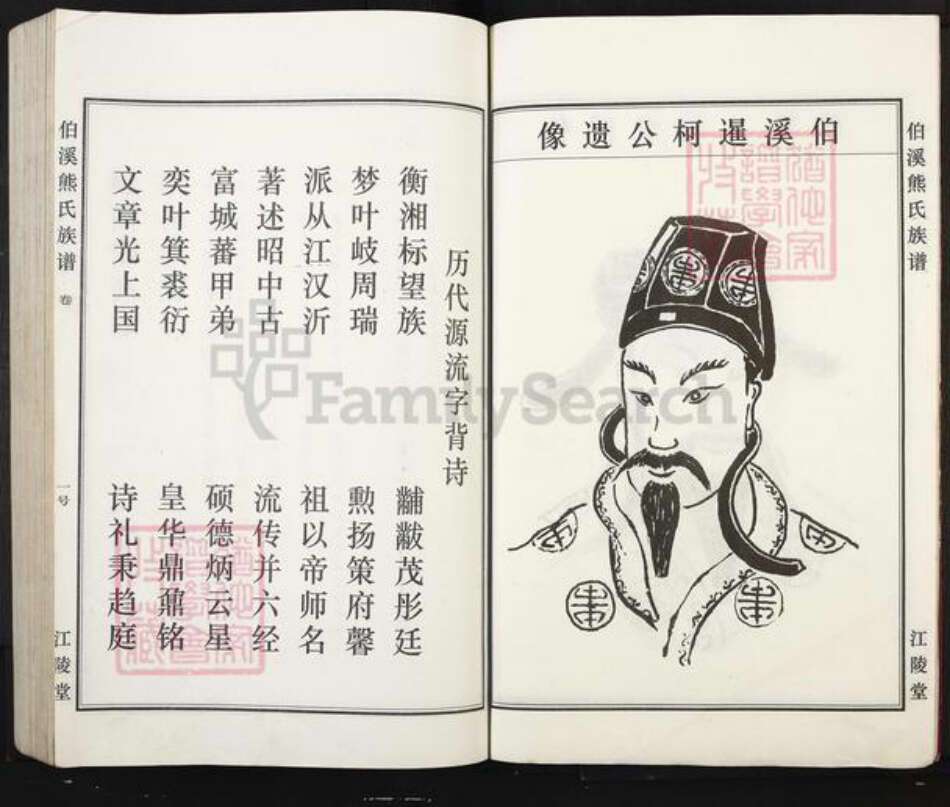 伯溪熊氏族谱
江陵堂
伯溪暹柯公遗像
历代源流字背诗
衡湘标望族 黼黻茂彤廷
梦叶岐周瑞 勲扬策府馨
派从江汉沂 祖以帝师名
著述昭中古 流传并六经
富城蕃甲弟 硕德炳云星
奕叶箕裘衍 皇华鼎鼐铭
文章光上国 诗礼秉趋庭
伯溪熊氏族谱
卷
一号
江陵堂
FamilySearch